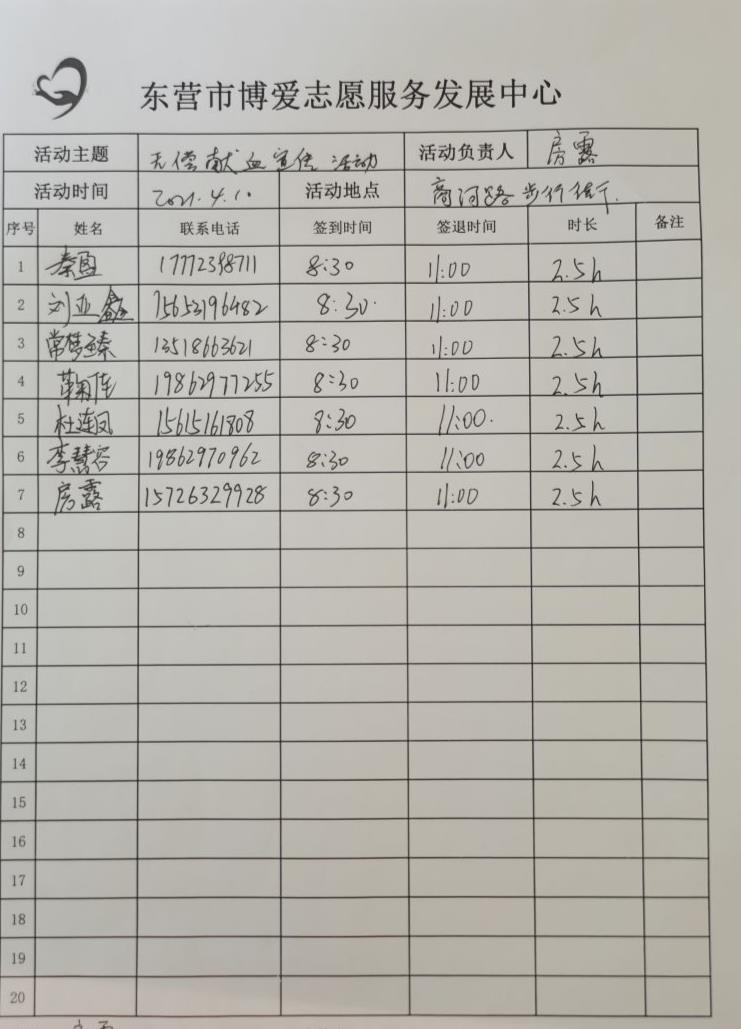 东营市博爱志愿服务发展中心
活动主题 无偿献血宣传活动 活动负责人 房露
活动时间 2021.4.10 活动地点 商河路步行街
序号 姓名 联系电话 签到时间 签退时间 时长 备注
1 秦盈 17772398711 8:30 11:00 2.5h
2 刘亚鑫 15653196482 8:30 11:00 2.5h
3 常梦臻 13518663621 8:30 11:00 2.5h
4 鞠佳 19862977255 8:30 11:00 2.5h
5 杜连凤 15615161808 8:30 11:00 2.5h
6 李慧容 19862970962 8:30 11:00 2.5h
7 房露 15726329928 8:30 11:00 2.5h
8
9
10
11
12
13
14
15
16
17
18
19
20